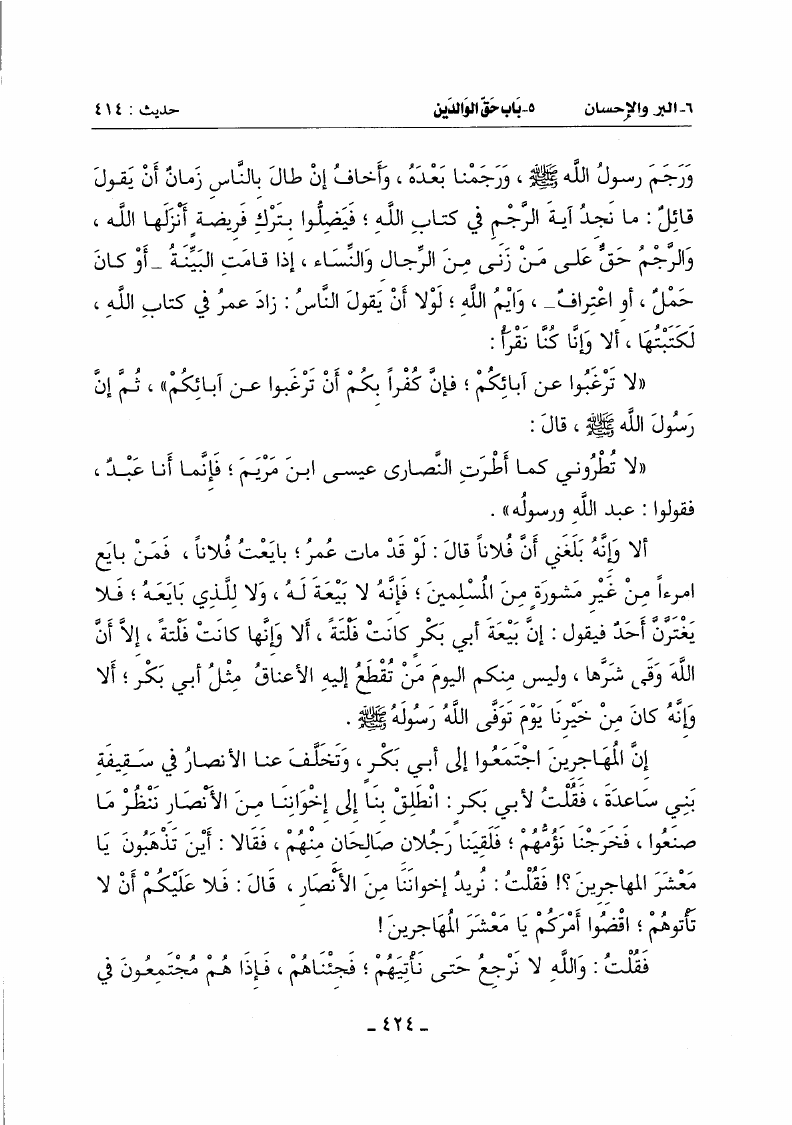 ٦- البر والإحسان ٥-بَاب حَقِّ الوَالدَين حديث : ٤١٤
وَرَجَمَ رسولُ اللَّه ﷺ ، وَرَجَمْنا بَعْدَهُ ، وَأخافُ إنْ طالَ بالنَّاسِ زَمانٌ أنْ يَقولَ
قائِلٌ : ما نَجدُ آيةَ الرَّجْمِ في كتابِ اللَّهِ ؛ فَيَضِلُّوا بتَرْكِ فَريضةٍ أنْزَلَها اللَّه ،
والرَّجْمُ حَقٌّ عَلى مَنْ زَنى مِنَ الرِّجالِ وَالنِّسَاء ، إذا قامَتِ البَيِّنَةُ _ أوْ كانَ
حَمْلٌ ، أو اعْتِرافٌ_ ، وَايْمُ اللَّهِ ؛ لَوْلا أنْ يَقولَ النَّاسُ : زادَ عمرُ في كتابِ اللَّهِ ،
لَكَتَبْتُهَا ، ألا وَإنَّا كُنَّا نَقْرَأُ :
«لا تَرْغَبُوا عن آبائِكُمْ ؛ فإنَّ كُفْراً بكُمْ أنْ تَرْغَبوا عن آبائِكُمْ» ، ثُمَّ إنَّ
رَسُولَ اللَّه ﷺ ، قالَ :
«لا تُطْرُوني كما أطْرَتِ النَّصارى عيسى ابنَ مَرْيَمَ ؛ فَإنَّما أنا عَبْدٌ ،
فقولوا : عبد اللَّهِ ورسولُه» .
ألا وَإنَّهُ بَلَغَني أنَّ فُلاناً قالَ : لَوْ قَدْ مات عُمرُ ؛ بايَعْتُ فُلاناً ، فَمَنْ بايَعَ
امرءاً مِنْ غَيْرِ مَشورَةٍ مِنَ المُسْلِمينَ ؛ فَإنَّهُ لا بَيْعَةَ لَهُ ، وَلا لِلَّذي بَايَعَهُ ؛ فَلا
يَغْتَرَّنَّ أحَدٌ فيقول : إنَّ بَيْعَةَ أبي بَكْرٍ كانَتْ فَلْتَةً ، ألا وَإنَّها كانَتْ فَلْتةً ، إلاَّ أنَّ
اللَّهَ وَقَى شَرَّها ، وليس منكم اليومَ مَنْ تُقْطَعُ إليهِ الأعناقُ مِثْلُ أبي بَكْرٍ ؛ ألا
وَإنَّه كانَ مِنْ خَيْرِنَا يَوْمَ تَوَفَّى اللَّهُ رَسُولَهُ ﷺ .
إنَّ المُهاجرينَ اجْتَمَعُوا إلى أبي بَكْرٍ ، وَتَخَلَّفَ عنا الأنصارُ في سَقيفَةِ
بَنِي سَاعدَة ، فَقُلْتُ لأبي بَكرٍ : انْطَلِقْ بنَا إلى إخْوَانِنا مِنَ الأنْصَارِ نَنْظُرْ مَا
صنَعُوا ، فَخَرَجْنَا نَؤُمُّهُمْ ؛ فَلَقِيَنا رَجُلانِ صَالِحَانِ مِنْهُمْ ، فَقَالا : أيْنَ تَذْهَبُونَ يَا
مَعْشَرَ المهاجرينَ ؟! فَقُلْتُ : نُريدُ إخواننَا مِنَ الأنْصَارِ ، قَالَ : فَلا عَلَيْكُمْ أنْ لا
تَأتوهُمْ ؛ اقْضُوا أمْرَكُمْ يَا مَعْشَرَ المُهَاجرينَ !
فَقُلْتُ : وَاللَّهِ لا نَرْجعُ حَتى نَأتِيَهُمْ ؛ فَجئْنَاهُمْ ، فَإذَا هُمْ مُجْتَمِعُونَ في
_ ٤٢٤ _